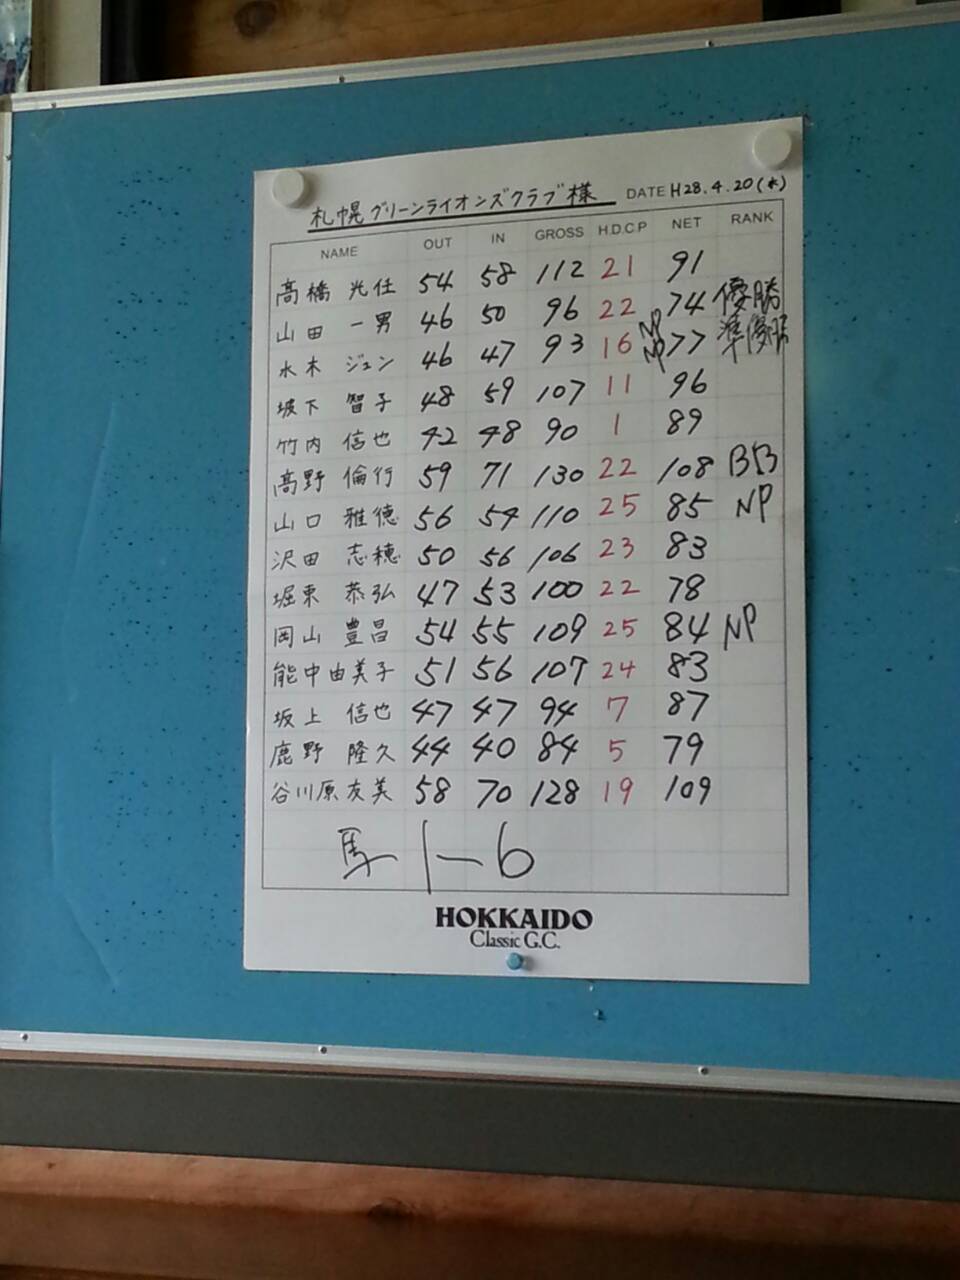 札幌グリーンライオンズクラブ様 DATE H28.4.20(水)
NAME OUT IN GROSS H.D.C.P NET RANK
高橋 光任 54 58 112 21 91
山田 一男 46 50 96 22 NP 74 優勝
水木 ジュン 46 47 93 16 NP 77 準優勝
坂下 智子 48 59 107 11 96
竹内 信也 42 48 90 1 89
高野 倫行 59 71 130 22 108 BB
山口 雅徳 56 54 110 25 85 NP
沢田 志穂 50 56 106 23 83
堀東 恭弘 47 53 100 22 78
岡山 豊昌 54 55 109 25 84 NP
能中由美子 51 56 107 24 83
坂上 信也 47 47 94 7 87
鹿野 隆久 44 40 84 5 79
谷川原友美 58 70 128 19 109
馬 1-6
HOKKAIDO
Classic G.C.